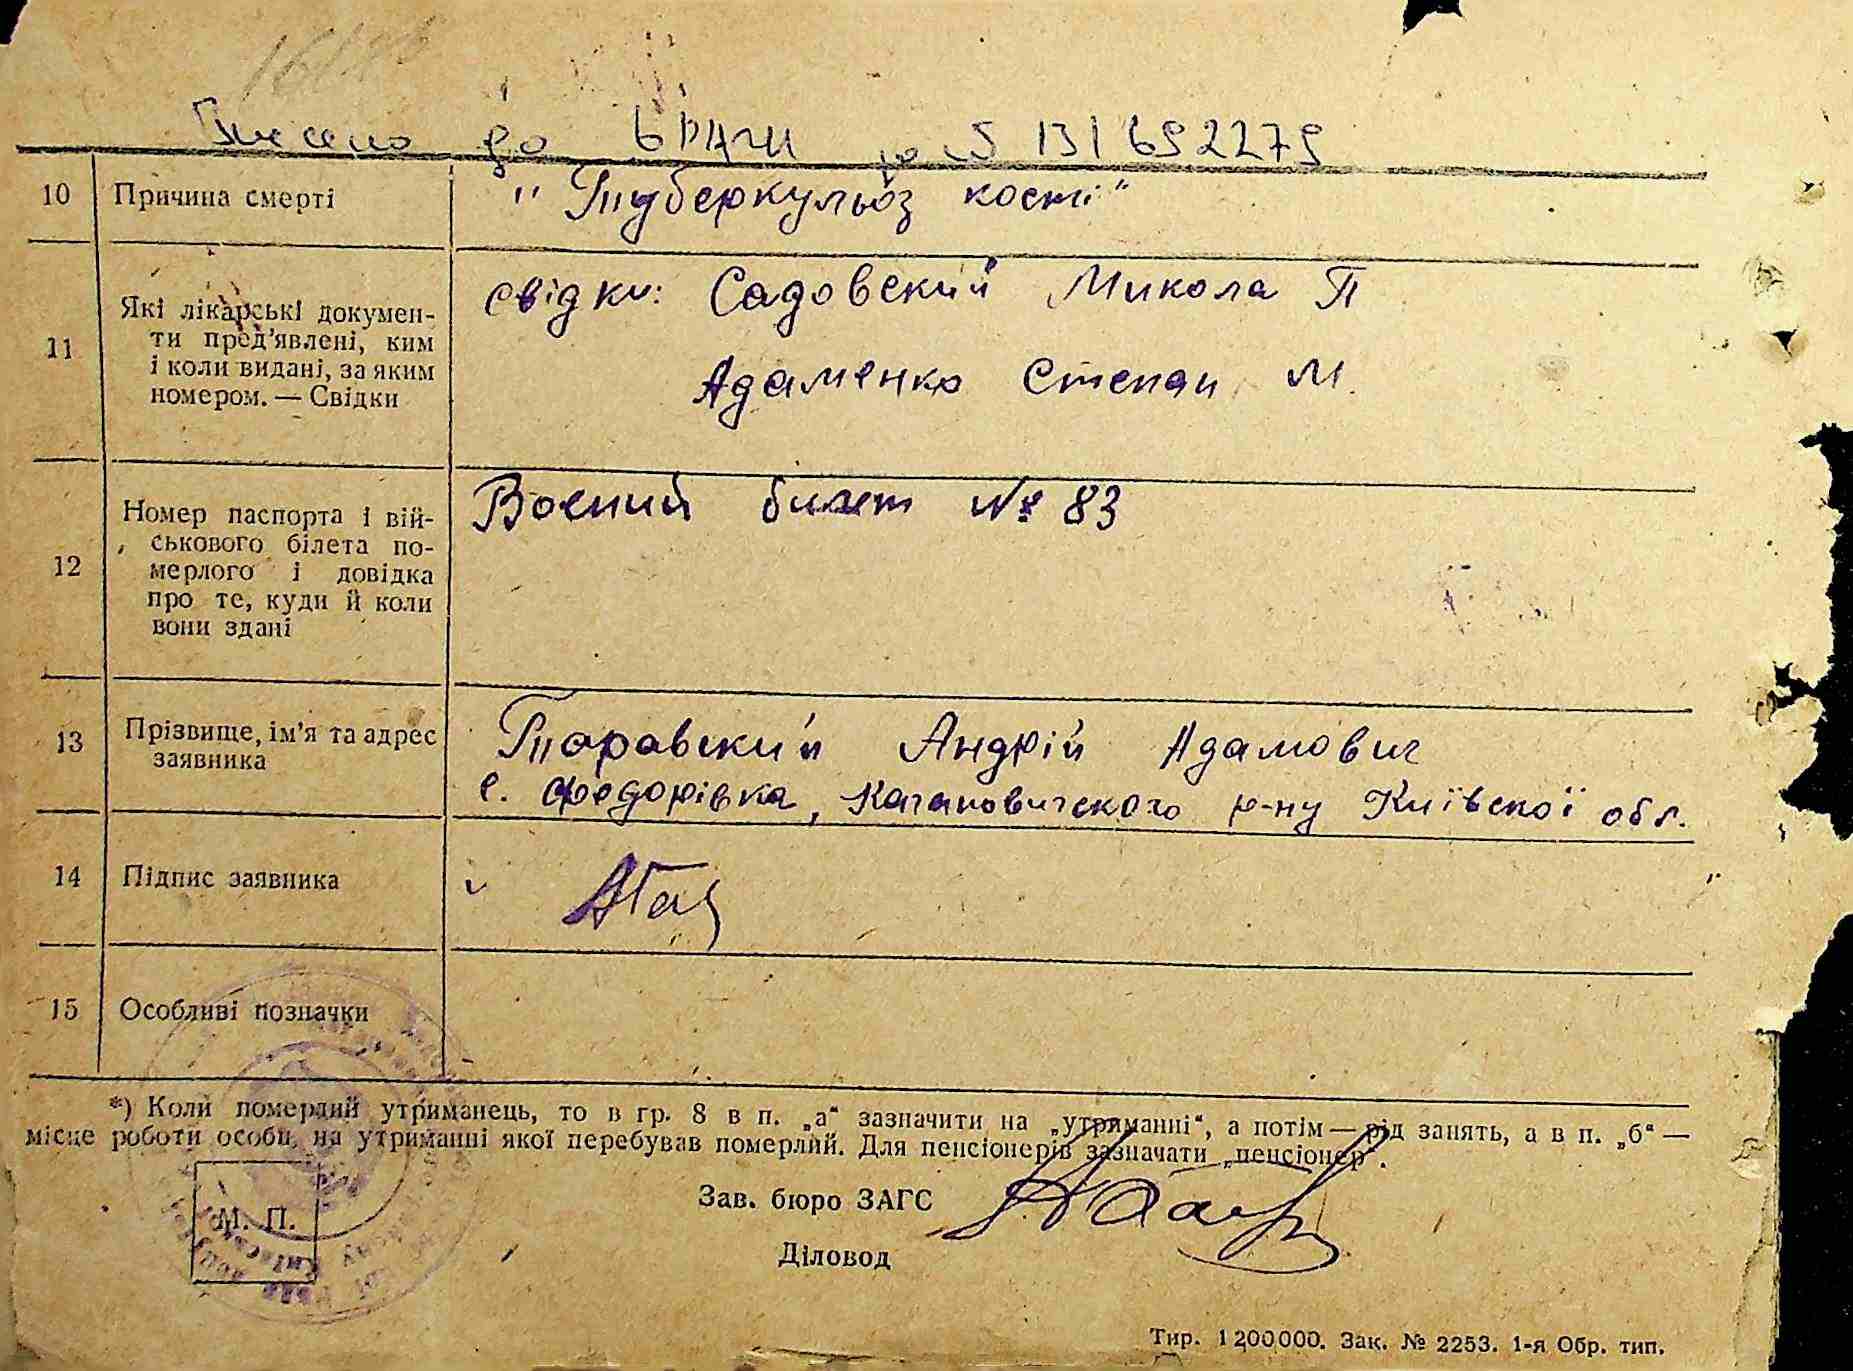 Внесено до ДРАЦС 
10 Причина смерті "Туберкульоз кості"
11 Які лікарські докумен-
ти пред'явлені, ким
і коли видані, за яким
номером. — Свідки
свідки: Садовский Микола П
Адаменко Степан М.
12 Номер паспорта і вій-
ськового білета по-
мерлого і довідка
про те, куди й коли
вони здані
Воєний билет № 83
13 Прізвище, ім'я та адрес
заявника
Таравский Андрій Адамович
с. Федорівка, Кагановичского р-ну Київскої обл.
14 Підпис заявника
15 Особливі позначки
*) Коли померлий утриманець, то в гр. 8 в п. „а“ зазначити на „утриманні“, а потім — рід занять, а в п. „б“ —
місце роботи особи, на утриманні якої перебував померлий. Для пенсіонерів зазначати „пенсіонер“.
Зав. бюро ЗАГС
М. П.
Діловод
Тир. 1200000. Зак. № 2253. 1-я Обр. тип.